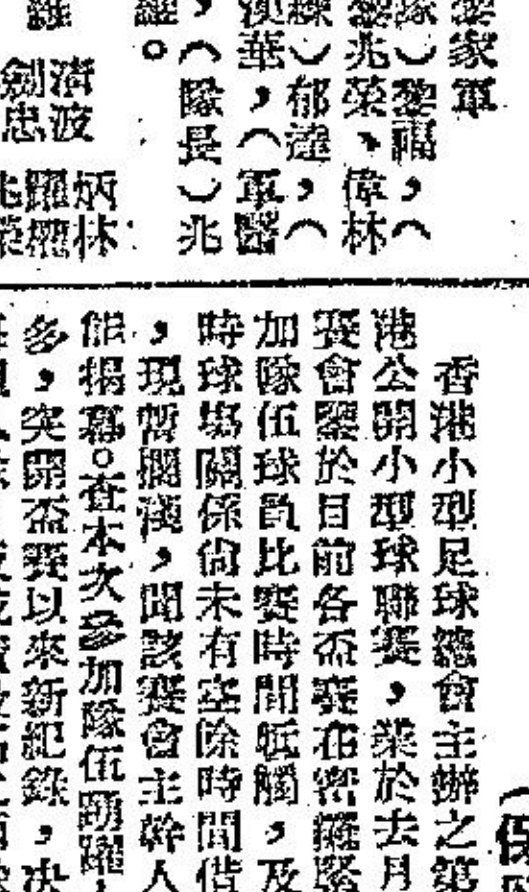 黎家軍
隊）黎福，（
黎兆榮、偉林
練）郁達，（
漢華，（軍醫
，（隊長）兆
。
濤波　炳林
劍忠　耀權
香港小型足球總會主辦之第
港公開小型球聯賽，業於去月
賽會鑒於目前各盃賽在密鑼緊
加隊伍球員比賽時間牴觸，及
時球塲關係尙未有空除時間借
，現暫擱淺，聞該賽會主幹人
能揭幕。查本次參加隊伍踴躍，
多，突開盃賽以來新紀錄，决